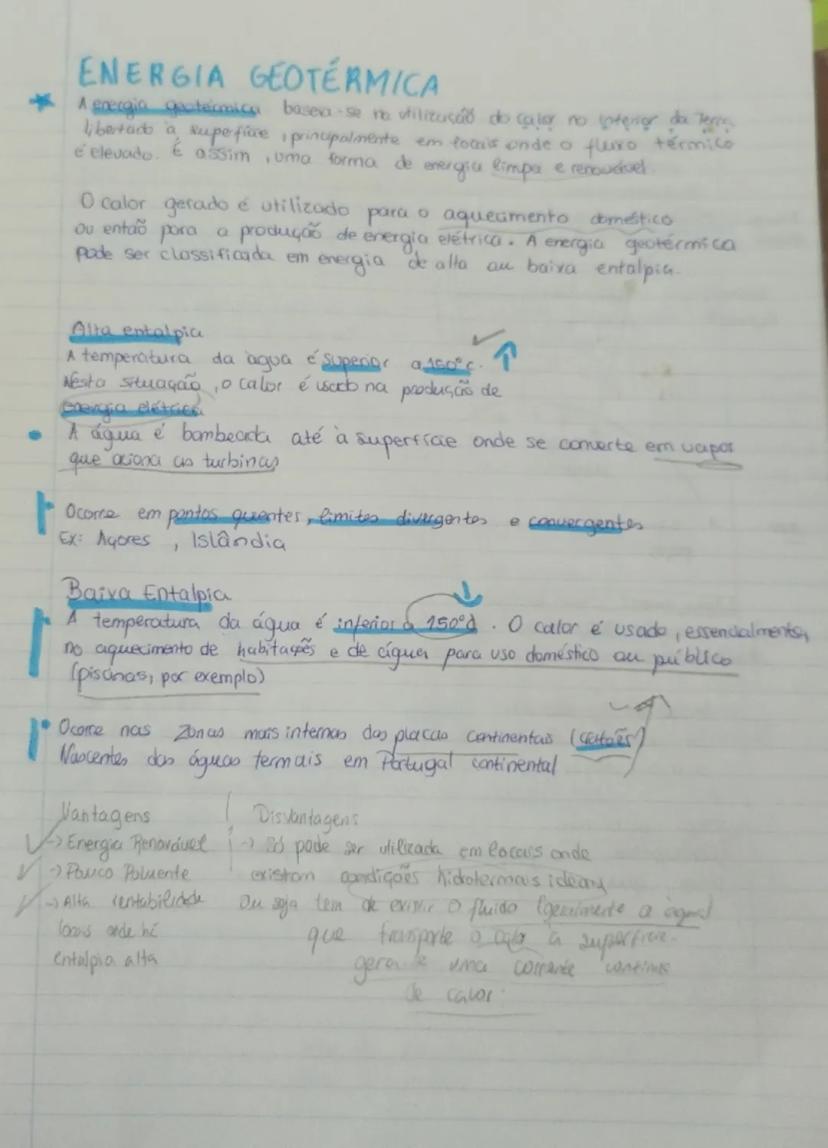 ENERGIA GEOTÉRMICA
A energia geotérmica baseia-se na utilização do calor no interior da Terra,
libertado à superfície, principalmente em locais onde o fluxo térmico
é elevado. É assim, uma forma de energia limpa e renovável.
O calor gerado é utilizado para o aquecimento doméstico
ou então para a produção de energia elétrica. A energia geotérmica
pode ser classificada em energia de alta ou baixa entalpia.
Alta entalpia
A temperatura da água é superior a 150°C.
Nesta situação, o calor é usado na produção de
energia elétrica.
A água é bombeada até à superfície onde se converte em vapor
que aciona as turbinas
Ocorre em pontos quentes, limites divergentes e convergentes
Ex: Açores, Islândia
Baixa Entalpia
A temperatura da água é inferior a 150°C. O calor é usado, essencialmente,
no aquecimento de habitações e de águas para uso doméstico ou público
(piscinas, por exemplo)
Ocorre nas zonas mais internas das placas continentais (cratões)
Nascentes das águas termais em Portugal continental
Vantagens Disvantagens
→ Energia Renovável → Só pode ser utilizada em locais onde
→ Pouco Poluente existam condições hidotermais ideais
→ Alta rentabilidade Ou seja tem de existir o fluido (geralmente a água)
locais onde há que transporte o calor à superfície.
entalpia alta gera-se uma corrente continua
de calor.